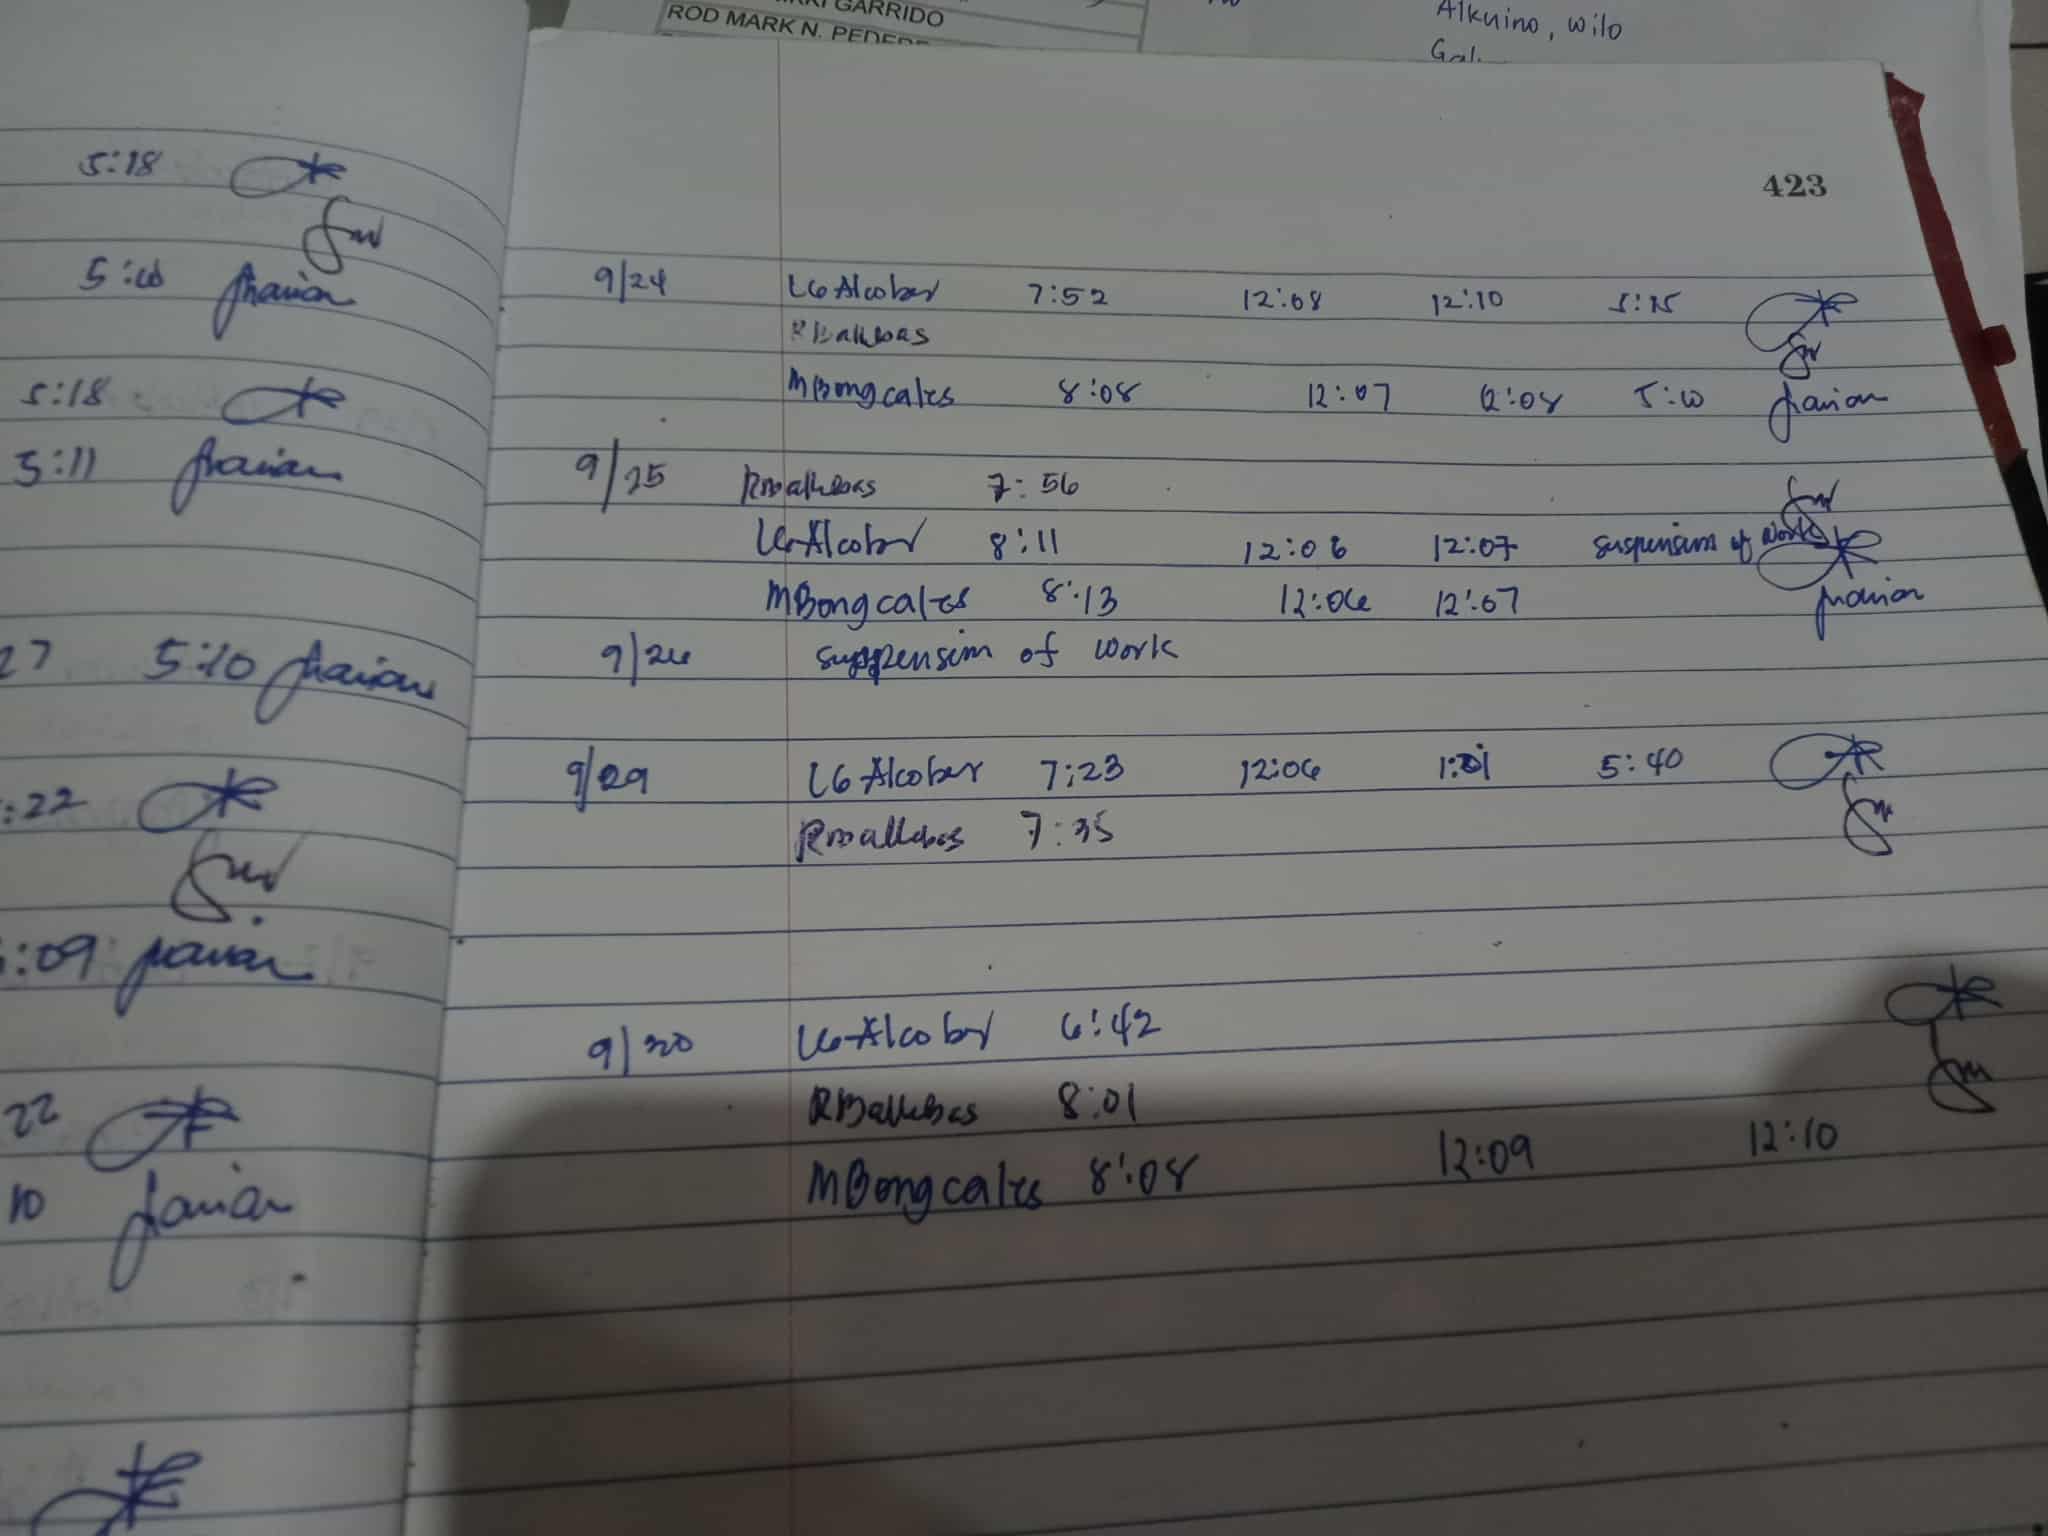 GARRIDO
ROD MARK N.
Alkuino, wilo
423
5:18
5:10
5:18
5:11
27 5:10
:22
:09
22
10
9/24 LG Alcober 7:52 12:08 12:10 5:15
RBallebas
MBongcales 8:08 12:07 12:08 5:10
9/25 RMBallebas 7:56
LG Alcober 8:11 12:06 12:07 suspension of work
MBongcales 8:13 12:06 12:07
9/26 suspension of work
9/29 LG Alcober 7:23 12:06 1:01 5:40
RMBallebas 7:35
9/30 LG Alcober 6:42
RBallebas 8:01
MBongcales 8:08 12:09 12:10